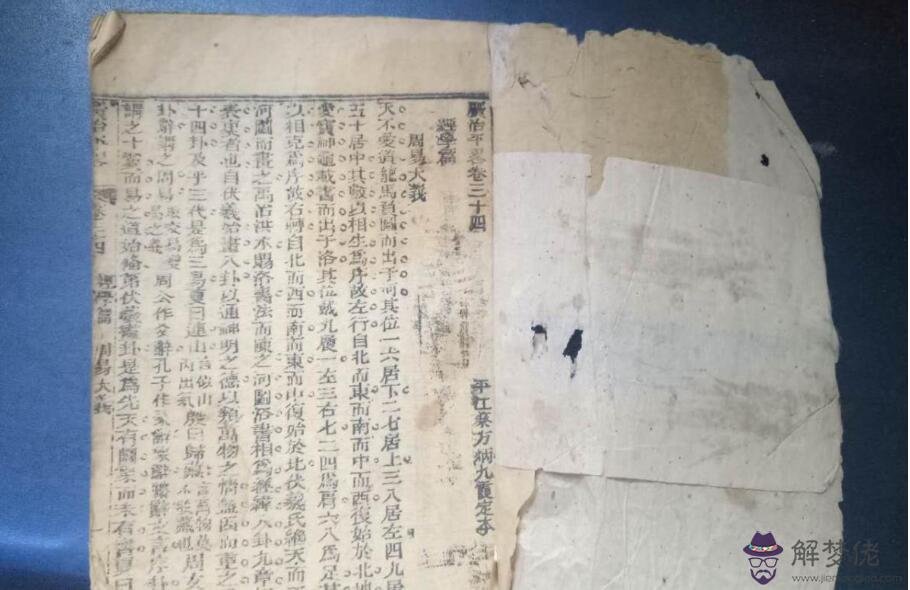 廣治平畧卷三十四
平江蔡方炳九霞定本
經學篇
周易大義
天不愛道龍馬負圖而出于河其位一六居下二七居上三八居左四九居
五十居中其數以相生爲序故左行自北而東而南而中而西復始於北地
愛寶神龜載書而出于洛其位戴九履一左三右七二四爲肩六八爲足
以相克爲序故右轉自北而西而南而東而中復始於北伏羲氏繼天而
河圖而畫之禹治洪水賜洛書法而陳之河圖洛書相爲經緯八卦九章
表裏者也自伏羲始畫八卦以通神明之德以類萬物之情蓋因而重之
十四卦及乎三代是爲三易夏曰連山 殷曰歸藏 周文
卦辭謂之周易 周公作爻辭孔子作
謂之十翼而易之道始備第伏羲畫卦是爲先天有圖象而未有書夏曰
經學篇 周易大義
解梦佬